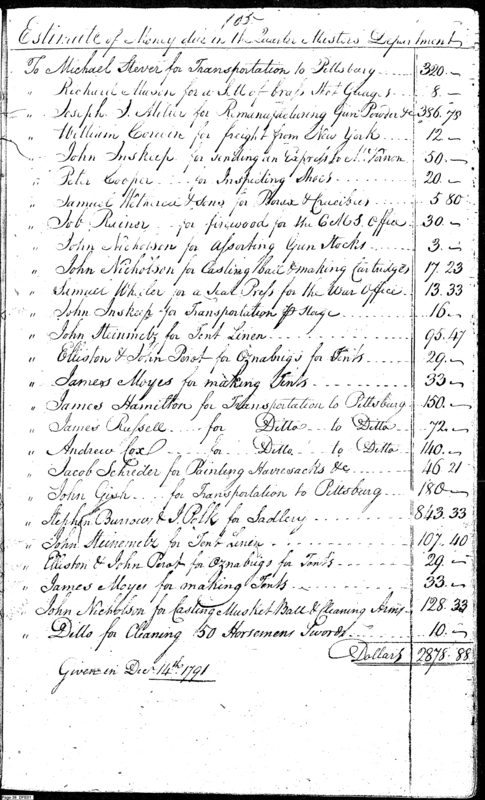 105
Estimate of Money due in the Quarter Masters Department
To Michael Stever for Transportation to Pittsburg 320.—
" Richard Mason for a Sett of brass Shot Guages 8.—
" Joseph I. Miller for Remanufacturing Gun Powder &c 386.78
" William Cowen for freight from New York 12—
" John Inskeep for sending an Express to Mt. Vernon 50.—
" Peter Cooper for Inspecting Shoes 20.—
" Samuel Wetherill & Sons for Borax & Crucibles 5 80
" Job Rainer for firewood for the Q M S. Office 30.—
" John Nicholson for assorting Gun Stocks 3.—
" John Nicholson for Casting Ball & making Cartridges 17.23
" Samuel Wheler for a Seal Press for the War Office 13.33
" John Inskeep for Transportation Stage 16.—
" John Steinmetz for Tent Linen 95.47
" Elliston & John Perot for Oznabrigs for Tents 29.—
" James Moyes for making Tents 33—
" James Hamilton for Transportation to Pittsburg 150.—
" James Russell for Ditto to Ditto 72.—
" Andrew Cox for Ditto to Ditto 140.—
" Jacob Schrieder for Painting Haversacks &c 46 21
" John Gish for Transportation to Pittsburg 180—
" Stephen Burrows & J. Polk for Sadlery 843.33
" John Steinemetz for Tent Linen 107.40
" Elliston & John Perot for Oznabrigs for Tents 29.—
" James Moyes for making Tents 33.—
" John Nicholson for Casting Musket Ball & Cleaning Arms 128.33
" Ditto for Cleaning 50 Horsemens Swords 10.—
Dollars 2878.88
Given in Decr 14th. 1791